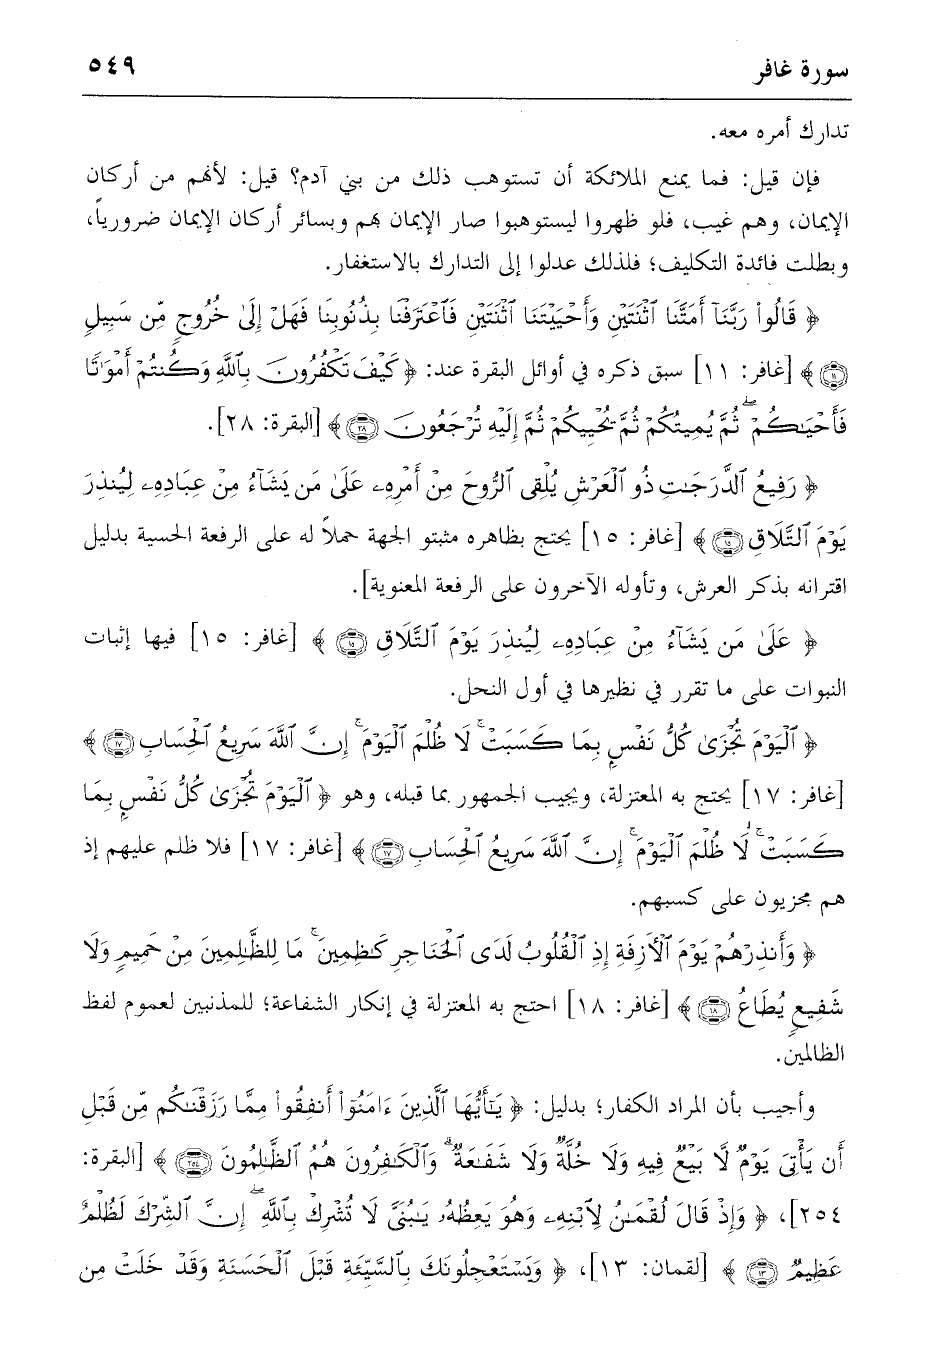 سورة غافر ٥٤٩
تدارك أمره معه.
فإن قيل: فما يمنع الملائكة أن تستوهب ذلك من بني آدم؟ قيل: لأنهم من أركان
الإيمان، وهم غيب، فلو ظهروا ليستوهبوا صار الإيمان بهم وبسائر أركان الإيمان ضرورياً،
وبطلت فائدة التكليف؛ فلذلك عدلوا إلى التدارك بالاستغفار.
﴿ قَالُوا۟ رَبَّنَآ أَمَتَّنَا ٱثْنَتَيْنِ وَأَحْيَيْتَنَا ٱثْنَتَيْنِ فَٱعْتَرَفْنَا بِذُنُوبِنَا فَهَلْ إِلَىٰ خُرُوجٍ مِّن سَبِيلٍ
١١ ﴾ [غافر: ١١] سبق ذكره في أوائل البقرة عند: ﴿ كَيْفَ تَكْفُرُونَ بِٱللَّهِ وَكُنتُمْ أَمْوَٰتًا
فَأَحْيَـٰكُمْ ۖ ثُمَّ يُمِيتُكُمْ ثُمَّ يُحْيِيكُمْ ثُمَّ إِلَيْهِ تُرْجَعُونَ ٢٨ ﴾ [البقرة: ٢٨].
﴿ رَفِيعُ ٱلدَّرَجَـٰتِ ذُو ٱلْعَرْشِ يُلْقِى ٱلرُّوحَ مِنْ أَمْرِهِۦ عَلَىٰ مَن يَشَآءُ مِنْ عِبَادِهِۦ لِيُنذِرَ
يَوْمَ ٱلتَّلَاقِ ١٥ ﴾ [غافر: ١٥] يحتج بظاهره مثبتو الجهة حملاً له على الرفعة الحسية بدليل
اقترانه بذكر العرش، وتأوله الآخرون على الرفعة المعنوية].
﴿ عَلَىٰ مَن يَشَآءُ مِنْ عِبَادِهِۦ لِيُنذِرَ يَوْمَ ٱلتَّلَاقِ ١٥ ﴾ [غافر: ١٥] فيها إثبات
النبوات على ما تقرر في نظيرها في أول النحل.
﴿ ٱلْيَوْمَ تُجْزَىٰ كُلُّ نَفْسٍۭ بِمَا كَسَبَتْ ۚ لَا ظُلْمَ ٱلْيَوْمَ ۚ إِنَّ ٱللَّهَ سَرِيعُ ٱلْحِسَابِ ١٧ ﴾
[غافر: ١٧] يحتج به المعتزلة، ويجيب الجمهور بما قبله، وهو ﴿ ٱلْيَوْمَ تُجْزَىٰ كُلُّ نَفْسٍۭ بِمَا
كَسَبَتْ ۚ لَا ظُلْمَ ٱلْيَوْمَ ۚ إِنَّ ٱللَّهَ سَرِيعُ ٱلْحِسَابِ ١٧ ﴾ [غافر: ١٧] فلا ظلم عليهم إذ
هم مجزيون على كسبهم.
﴿ وَأَنذِرْهُمْ يَوْمَ ٱلْـَٔازِفَةِ إِذِ ٱلْقُلُوبُ لَدَى ٱلْحَنَاجِرِ كَـٰظِمِينَ ۚ مَا لِلظَّـٰلِمِينَ مِنْ حَمِيمٍ وَلَا
شَفِيعٍ يُطَاعُ ١٨ ﴾ [غافر: ١٨] احتج به المعتزلة في إنكار الشفاعة؛ للمذنبين لعموم لفظ
الظالمين.
وأجيب بأن المراد الكفار؛ بدليل: ﴿ يَـٰٓأَيُّهَا ٱلَّذِينَ ءَامَنُوٓا۟ أَنفِقُوا۟ مِمَّا رَزَقْنَـٰكُم مِّن قَبْلِ
أَن يَأْتِىَ يَوْمٌ لَّا بَيْعٌ فِيهِ وَلَا خُلَّةٌ وَلَا شَفَـٰعَةٌ ۗ وَٱلْكَـٰفِرُونَ هُمُ ٱلظَّـٰلِمُونَ ٢٥٤ ﴾ [البقرة:
٢٥٤]، ﴿ وَإِذْ قَالَ لُقْمَـٰنُ لِٱبْنِهِۦ وَهُوَ يَعِظُهُۥ يَـٰبُنَىَّ لَا تُشْرِكْ بِٱللَّهِ ۖ إِنَّ ٱلشِّرْكَ لَظُلْمٌ
عَظِيمٌ ١٣ ﴾ [لقمان: ١٣]، ﴿ وَيَسْتَعْجِلُونَكَ بِٱلسَّيِّئَةِ قَبْلَ ٱلْحَسَنَةِ وَقَدْ خَلَتْ مِن